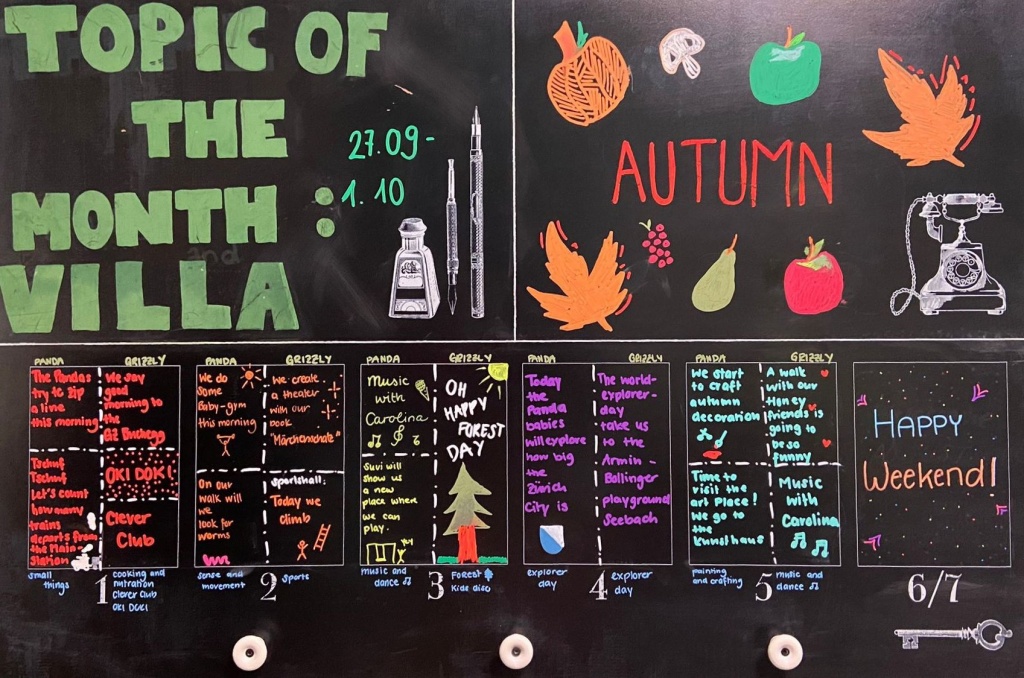 TOPIC OF
THE
MONTH :
VILLA
and
27.09-
1.10
AUTUMN
PANDA
The Pandas
try to zip
a line
this morning
Tschuf
Tschuf
Let's count
how many
trains
departs from
the Main-
Station
small
things
GRIZZLY
We say
good
morning to
the
GZ Buchegg
OKI DOKI
Clever
Club
1
cooking and
nutration
Clever Club
OKI DOKI
PANDA
We do
some
Baby-gym
this morning
On our
walk will
we
look for
worms
sense and
movement
GRIZZLY
We create
a theater
with our
book
"Märchenschatz"
sportshall:
Today we
climb
2
sports
PANDA
Music
with
Carolina
Suvi will
show us
a new
place where
we can
play.
music and
dance
GRIZZLY
OH
HAPPY
FOREST
DAY
3
FOREST
Kids disco
PANDA
Today
the
Panda
babies
will explore
how big
the
Zürich
City is
explorer
day
GRIZZLY
The world-
explorer-
day
take us
to the
Armin -
Bollinger
playground
Seebach
4
explorer
day
PANDA
We start
to craft
autumn
decoration
Time to
visit the
art Place!
We go to
the
Kunsthaus
painting
and crafting
GRIZZLY
A walk
with our
Honey
friends is
going to
be so
funny
Music
with
Carolina
5
music and
dance
HAPPY
Weekend!
6/7